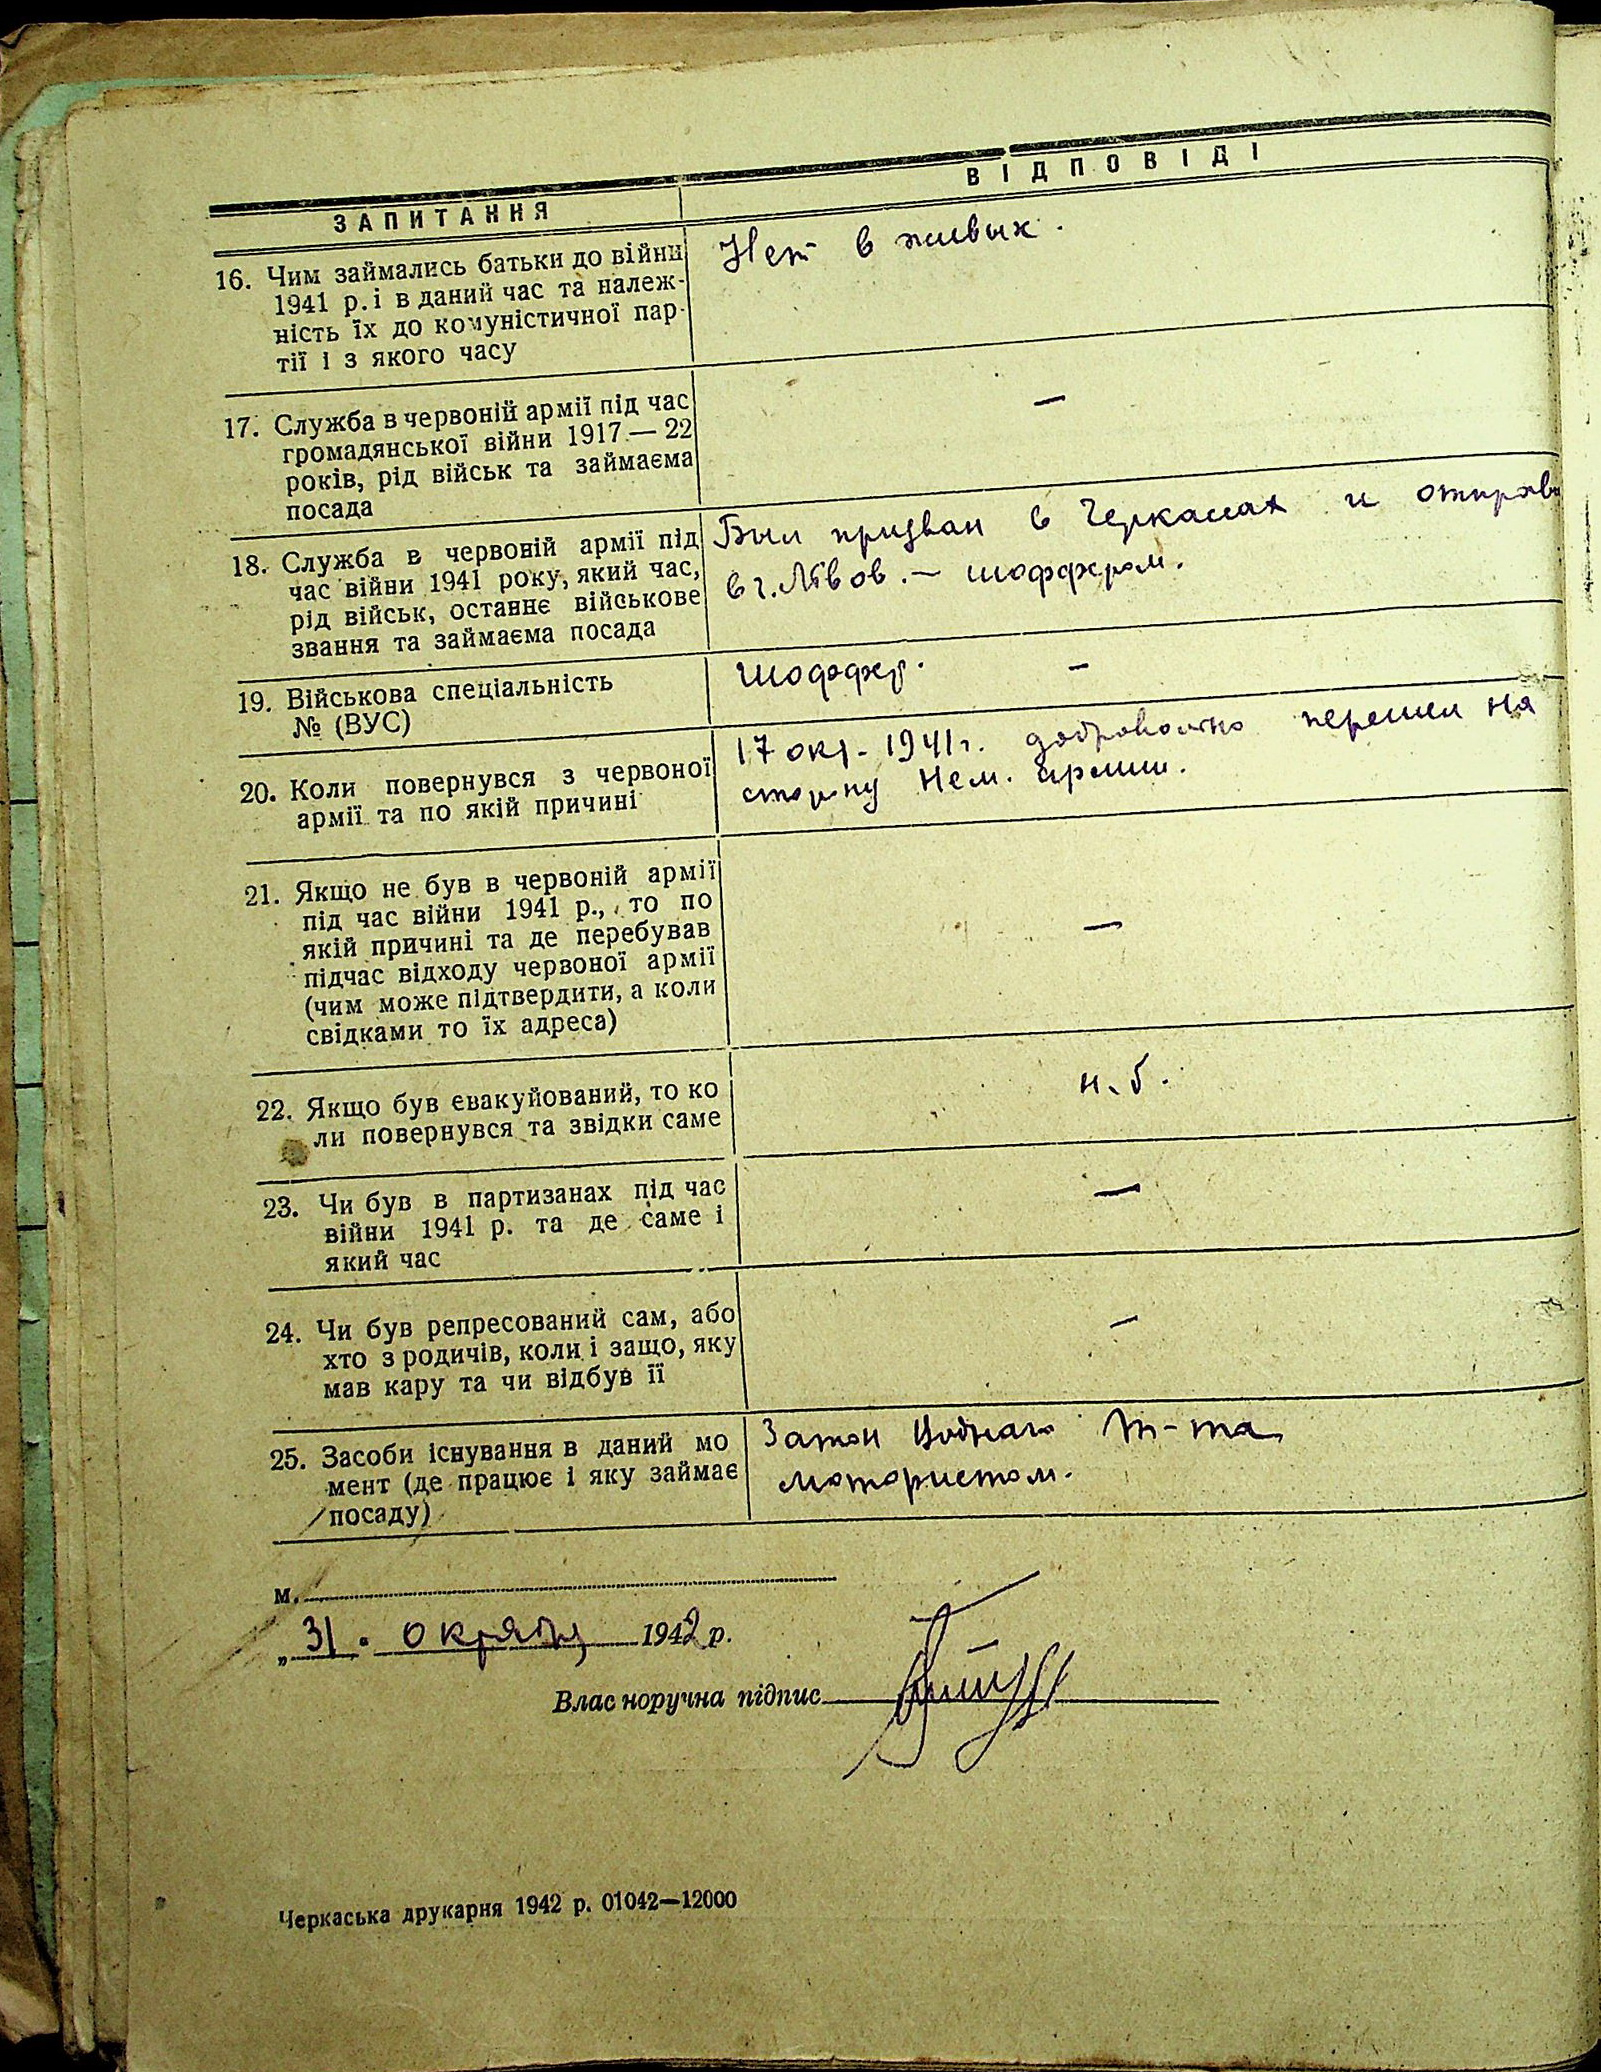 ЗАПИТАННЯ
ВІДПОВІДІ
16. Чим займались батьки до війни
1941 р. і в даний час та належ-
ність їх до комуністичної пар-
тії і з якого часу
Нет в живых.
17. Служба в червоній армії під час
громадянської війни 1917 — 22
років, рід військ та займаєма
посада
—
18. Служба в червоній армії під
час війни 1941 року, який час,
рід військ, останнє військове
звання та займаєма посада
Был призван в Черкассах и отправ
в г. Львов. — шоффером.
19. Військова спеціальність
№ (ВУС)
шоффер. —
20. Коли повернувся з червоної
армії та по якій причині
17 окт. 1941 г. добровольно перешел на
сторону Нем. армии.
21. Якщо не був в червоній армії
під час війни 1941 р., то по
якій причині та де перебував
підчас відходу червоної армії
(чим може підтвердити, а коли
свідками то їх адреса)
—
22. Якщо був евакуйований, то ко
ли повернувся та звідки саме
н. б.
23. Чи був в партизанах під час
війни 1941 р. та де саме і
який час
—
24. Чи був репресований сам, або
хто з родичів, коли і защо, яку
мав кару та чи відбув її
—
25. Засоби існування в даний мо
мент (де працює і яку займає
посаду)
Затон Водного т-та
мотористом.
м.
„31. октября 1942 р.
Власноручна підпис
Черкаська друкарня 1942 р. 01042—12000